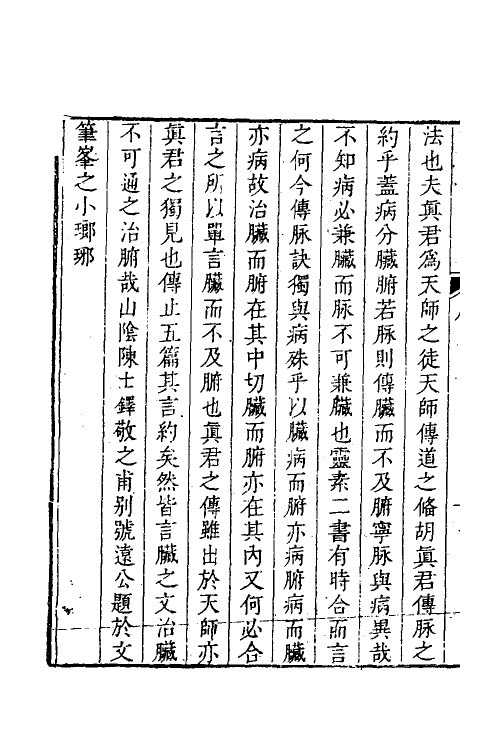 法也夫眞君爲天師之徒天師傳道之俻胡眞君傳脉之
約乎蓋病分臟腑若脉則傳臟而不及腑寧脉與病異哉
不知病必兼臟而脉不可兼臟也靈素二書有時合而言
之何今傳脉訣獨與病殊乎以臟病而腑亦病腑病而臟
亦病故治臟而腑在其中切臟而腑亦在其內又何必合
言之所以單言臟而不及腑也眞君之傳雖出於天師亦
眞君之獨見也傳止五篇其言約矣然皆言臟之文治臟
不可通之治腑哉山陰陳士鐸敬之甫别號遠公題於文
筆峯之小瑯琊